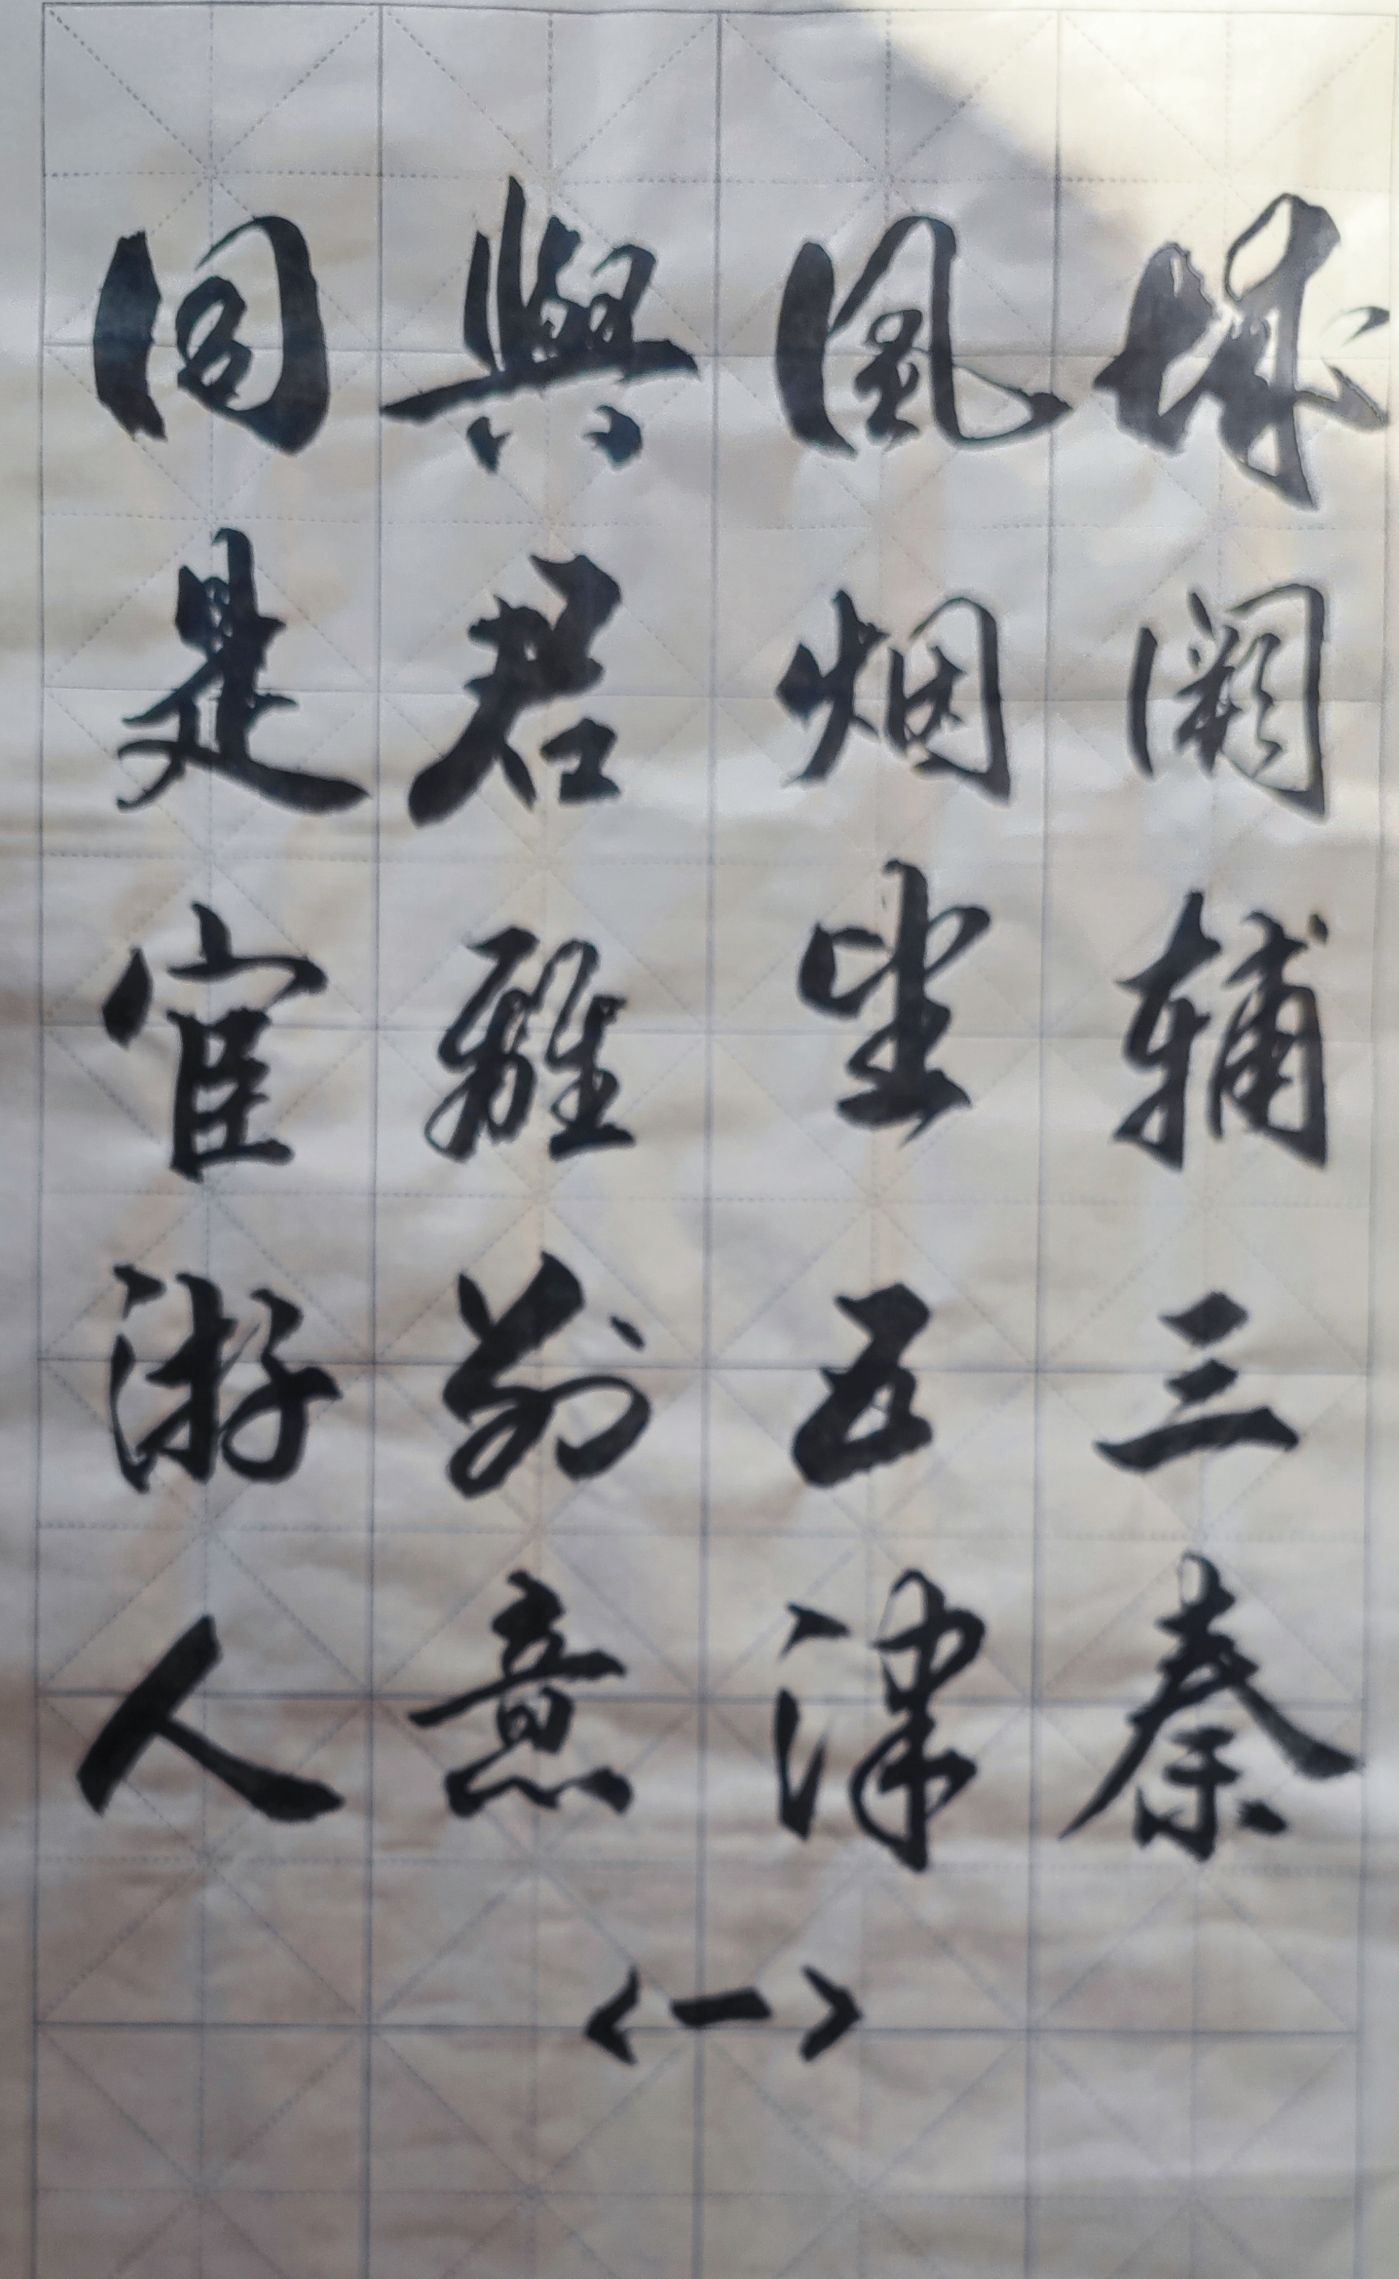 城阙辅三秦
風烟望五津
與君離别意
同是宦游人
<一>